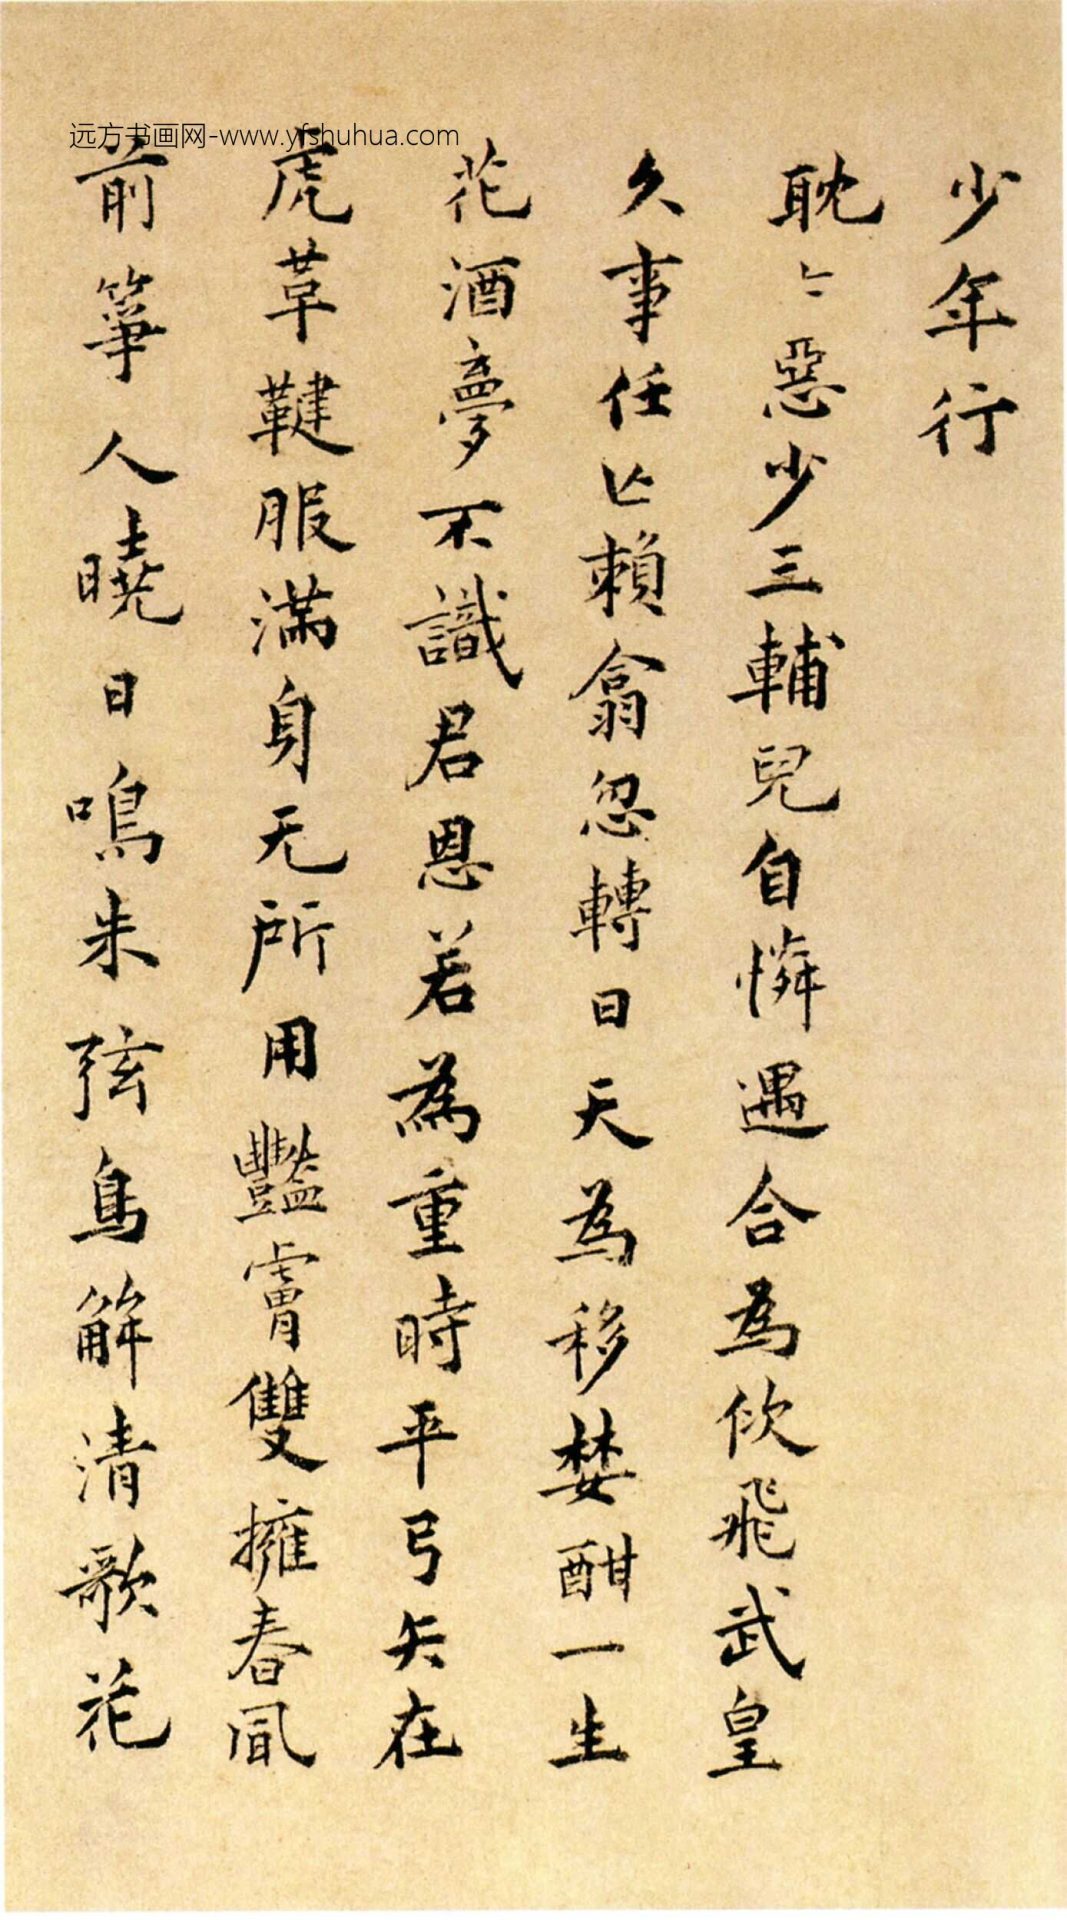 少年行
耽〻惡少三輔兒自憐遇合為佽飛武皇
久事任亡賴翕忽轉日天為移婪酣一生
花酒夢不識君恩若為重時平弓矢在
虎韋鞬服滿身无所用豔膚雙擁春風
前箏人曉日鳴朱弦鳥解清歌花
远方书画网-www.yfshuhua.com